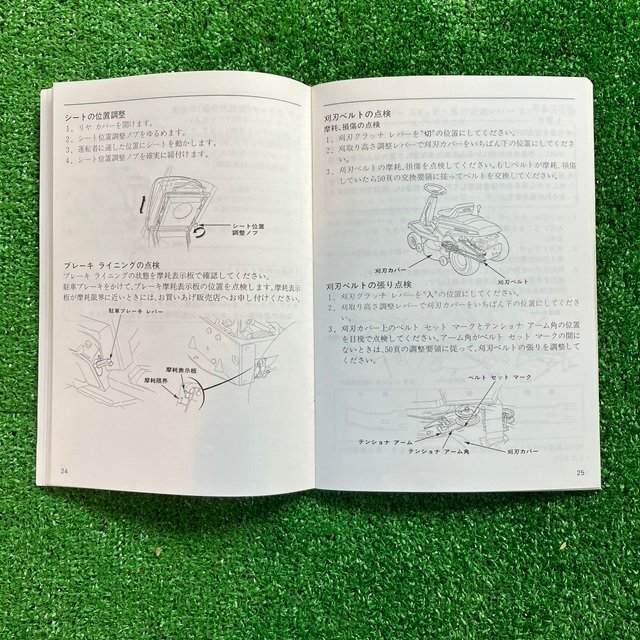 シートの位置調整
1．リヤ カバーを開けます。
2．シート位置調整ノブをゆるめます。
3．運転者に適した位置にシートを動かします。
4．シート位置調整ノブを確実に締付けます。
シート位置
調整ノブ
ブレーキ ライニングの点検
ブレーキ ライニングの状態を摩耗表示板で確認してください。
駐車ブレーキをかけて、ブレーキ摩耗表示板の位置を点検します。摩耗表示
板が摩耗限界に近いときには、お買いあげ販売店へお申し付けください。
駐車ブレーキ レバー
摩耗表示板
摩耗限界
24
刈刃ベルトの点検
摩耗、損傷の点検
1．刈刃クラッチ レバーを“切”の位置にしてください。
2．刈取り高さ調整レバーで刈刃カバーをいちばん下の位置にしてくださ
い。
3．刈刃ベルトの摩耗、損傷を点検してください。もしベルトが摩耗、損傷
していたら50頁の交換要領に従ってベルトを交換してください。
刈刃カバー
刈刃ベルト
刈刃ベルトの張り点検
1．刈刃クラッチ レバーを“入”の位置にしてください。
2．刈取り高さ調整レバーで刈刃カバーをいちばん下の位置にしてくださ
い。
3．刈刃カバー上のベルト セット マークとテンショナ アーム角の位置
を目視で点検してください。アーム角がベルト セット マークの間に
ないときは、50頁の調整要領に従って、刈刃ベルトの張りを調整して
ください。
ベルト セット マーク
テンショナ アーム
刈刃カバー
テンショナ アーム角
25